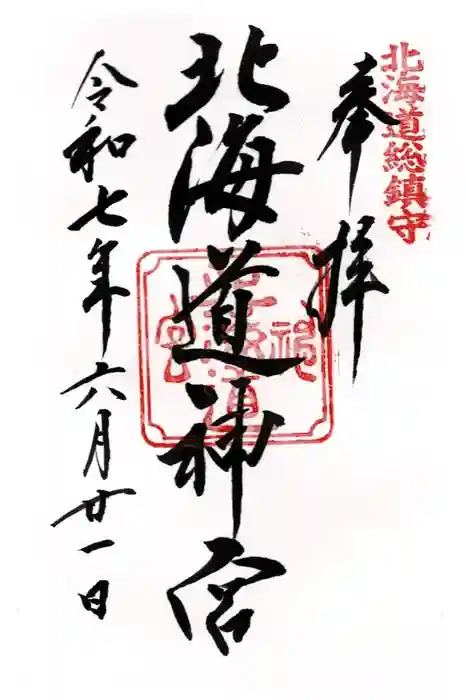 北海道総鎮守
奉拝
北海道神宮
令和七年六月廿一日